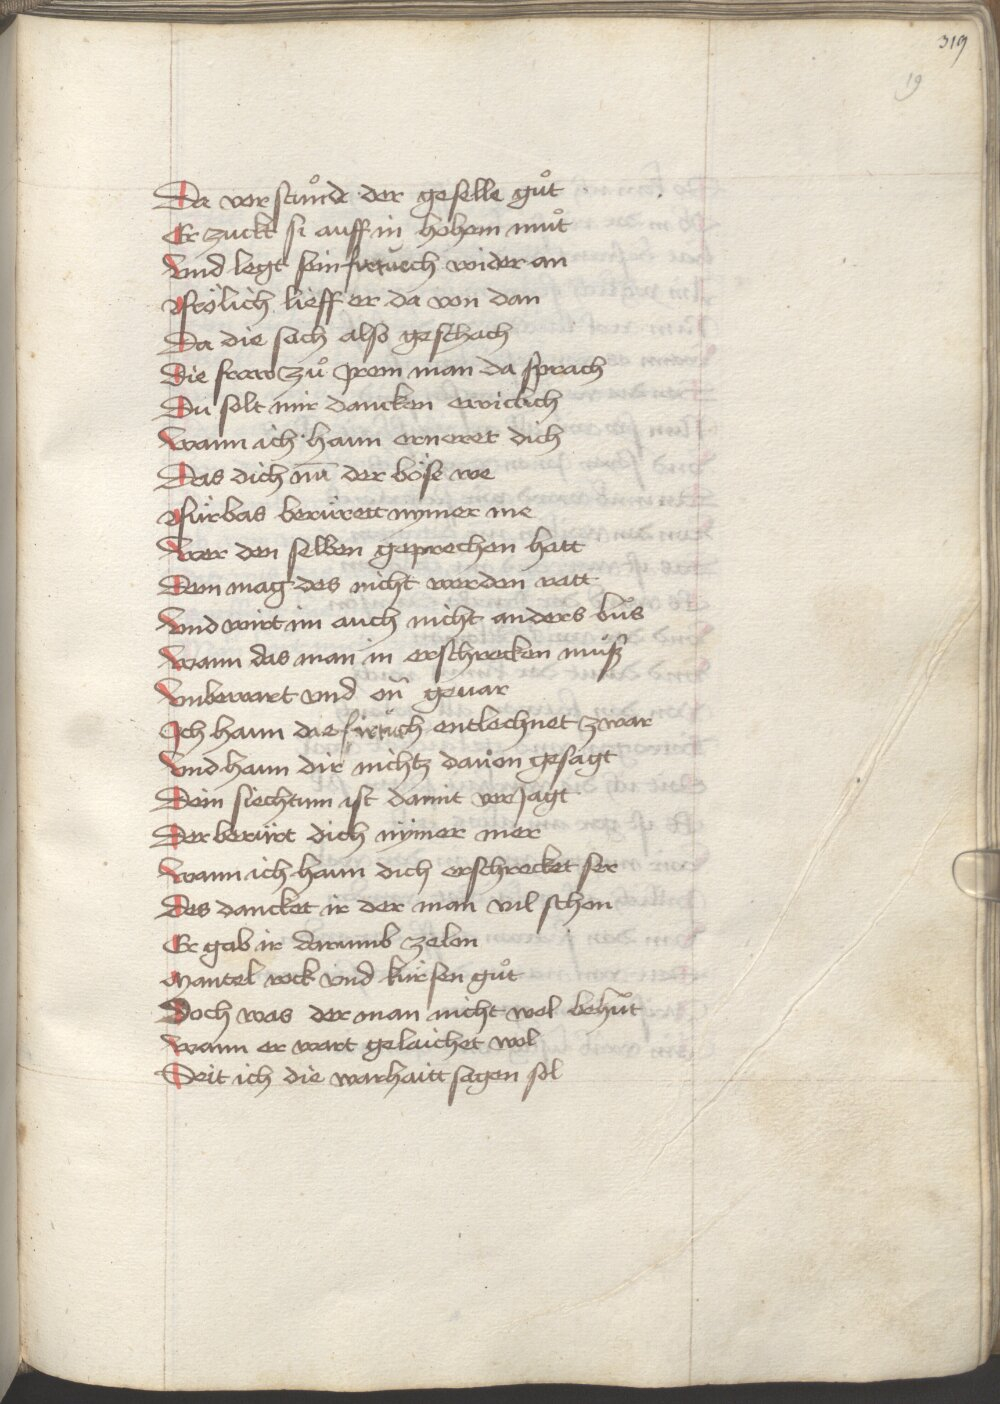 319
19
Da verstuͦnde der geselle guͦt
Er zuckt si auff in hohem muͦt
Vnd legt sein fürtuech wider an
Frölich lieff er da von dan
Da die sach also geschach
Die fraw zuͦ irem man da sprach
Du solt mir dancken ewiclich
Wann ich hann erneret dich
Das dich nū der böse we
Fürbas berürett nymer me
Wer den selben geprechen hatt
Dem mag des nicht werden ratt
Vnd wirt im auch nicht anders buͦs
Wann das man in erschrecken muͦß
Vnbewart vnd on̄ geuar
Ich hann die fürtuch entlechnet zwar
Vnd hann dir nichtz dauon gesagt
Dein siechtum ist damit verjagt
Der berürt dich nymer mer
Wann ich hann dich erschrecket ser
Des dancket ir der man vil schon
Er gab ir darumb zelon
Mantel rock vnd kürsen guͦt
Doch was der man nicht wol behuͦt
Wann er wart gelaichet wol
Seit ich die warhaitt sagen sol